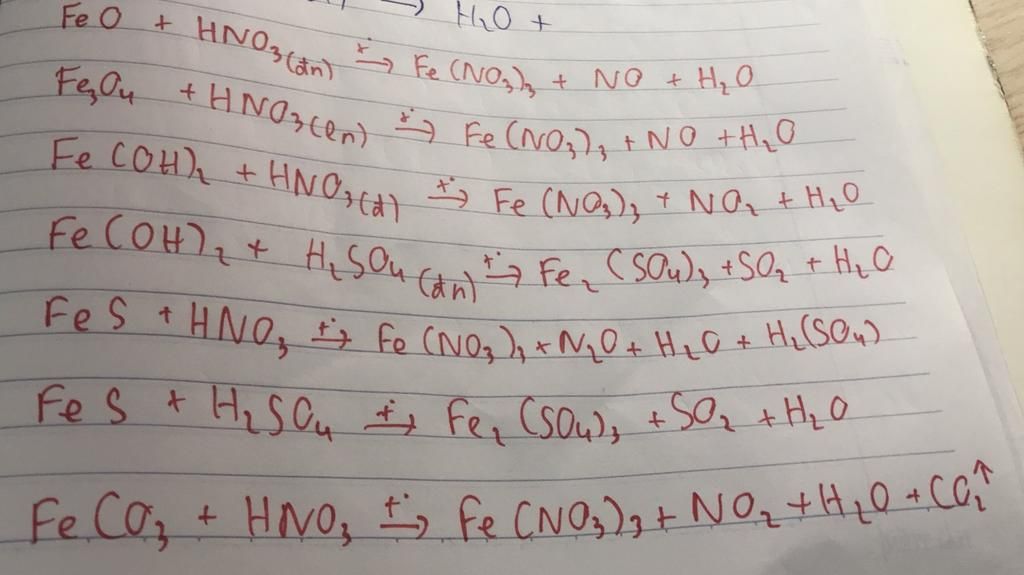 → H₂O +
FeO + HNO₃(đn) →t° Fe(NO₃)₃ + NO + H₂O
Fe₃O₄ + HNO₃(ln) →t° Fe(NO₃)₃ + NO + H₂O
Fe(OH)₂ + HNO₃(đ) →t° Fe(NO₃)₃ + NO₂ + H₂O
Fe(OH)₂ + H₂SO₄(đn) →t° Fe₂(SO₄)₃ + SO₂ + H₂O
FeS + HNO₃ →t° Fe(NO₃)₃ + N₂O + H₂O + H₂(SO₄)
FeS + H₂SO₄ →t° Fe₂(SO₄)₃ + SO₂ + H₂O
FeCO₃ + HNO₃ →t° Fe(NO₃)₃ + NO₂ + H₂O + CO₂↑